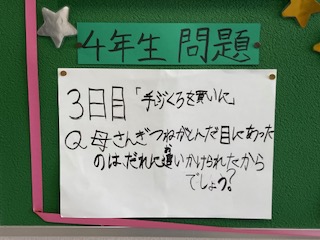 4年生 問題
3日目 「手ぶくろを買いに」
Q.母さんぎつねがとんだ目にあった
のは、だれに追いかけられたから
でしょう?